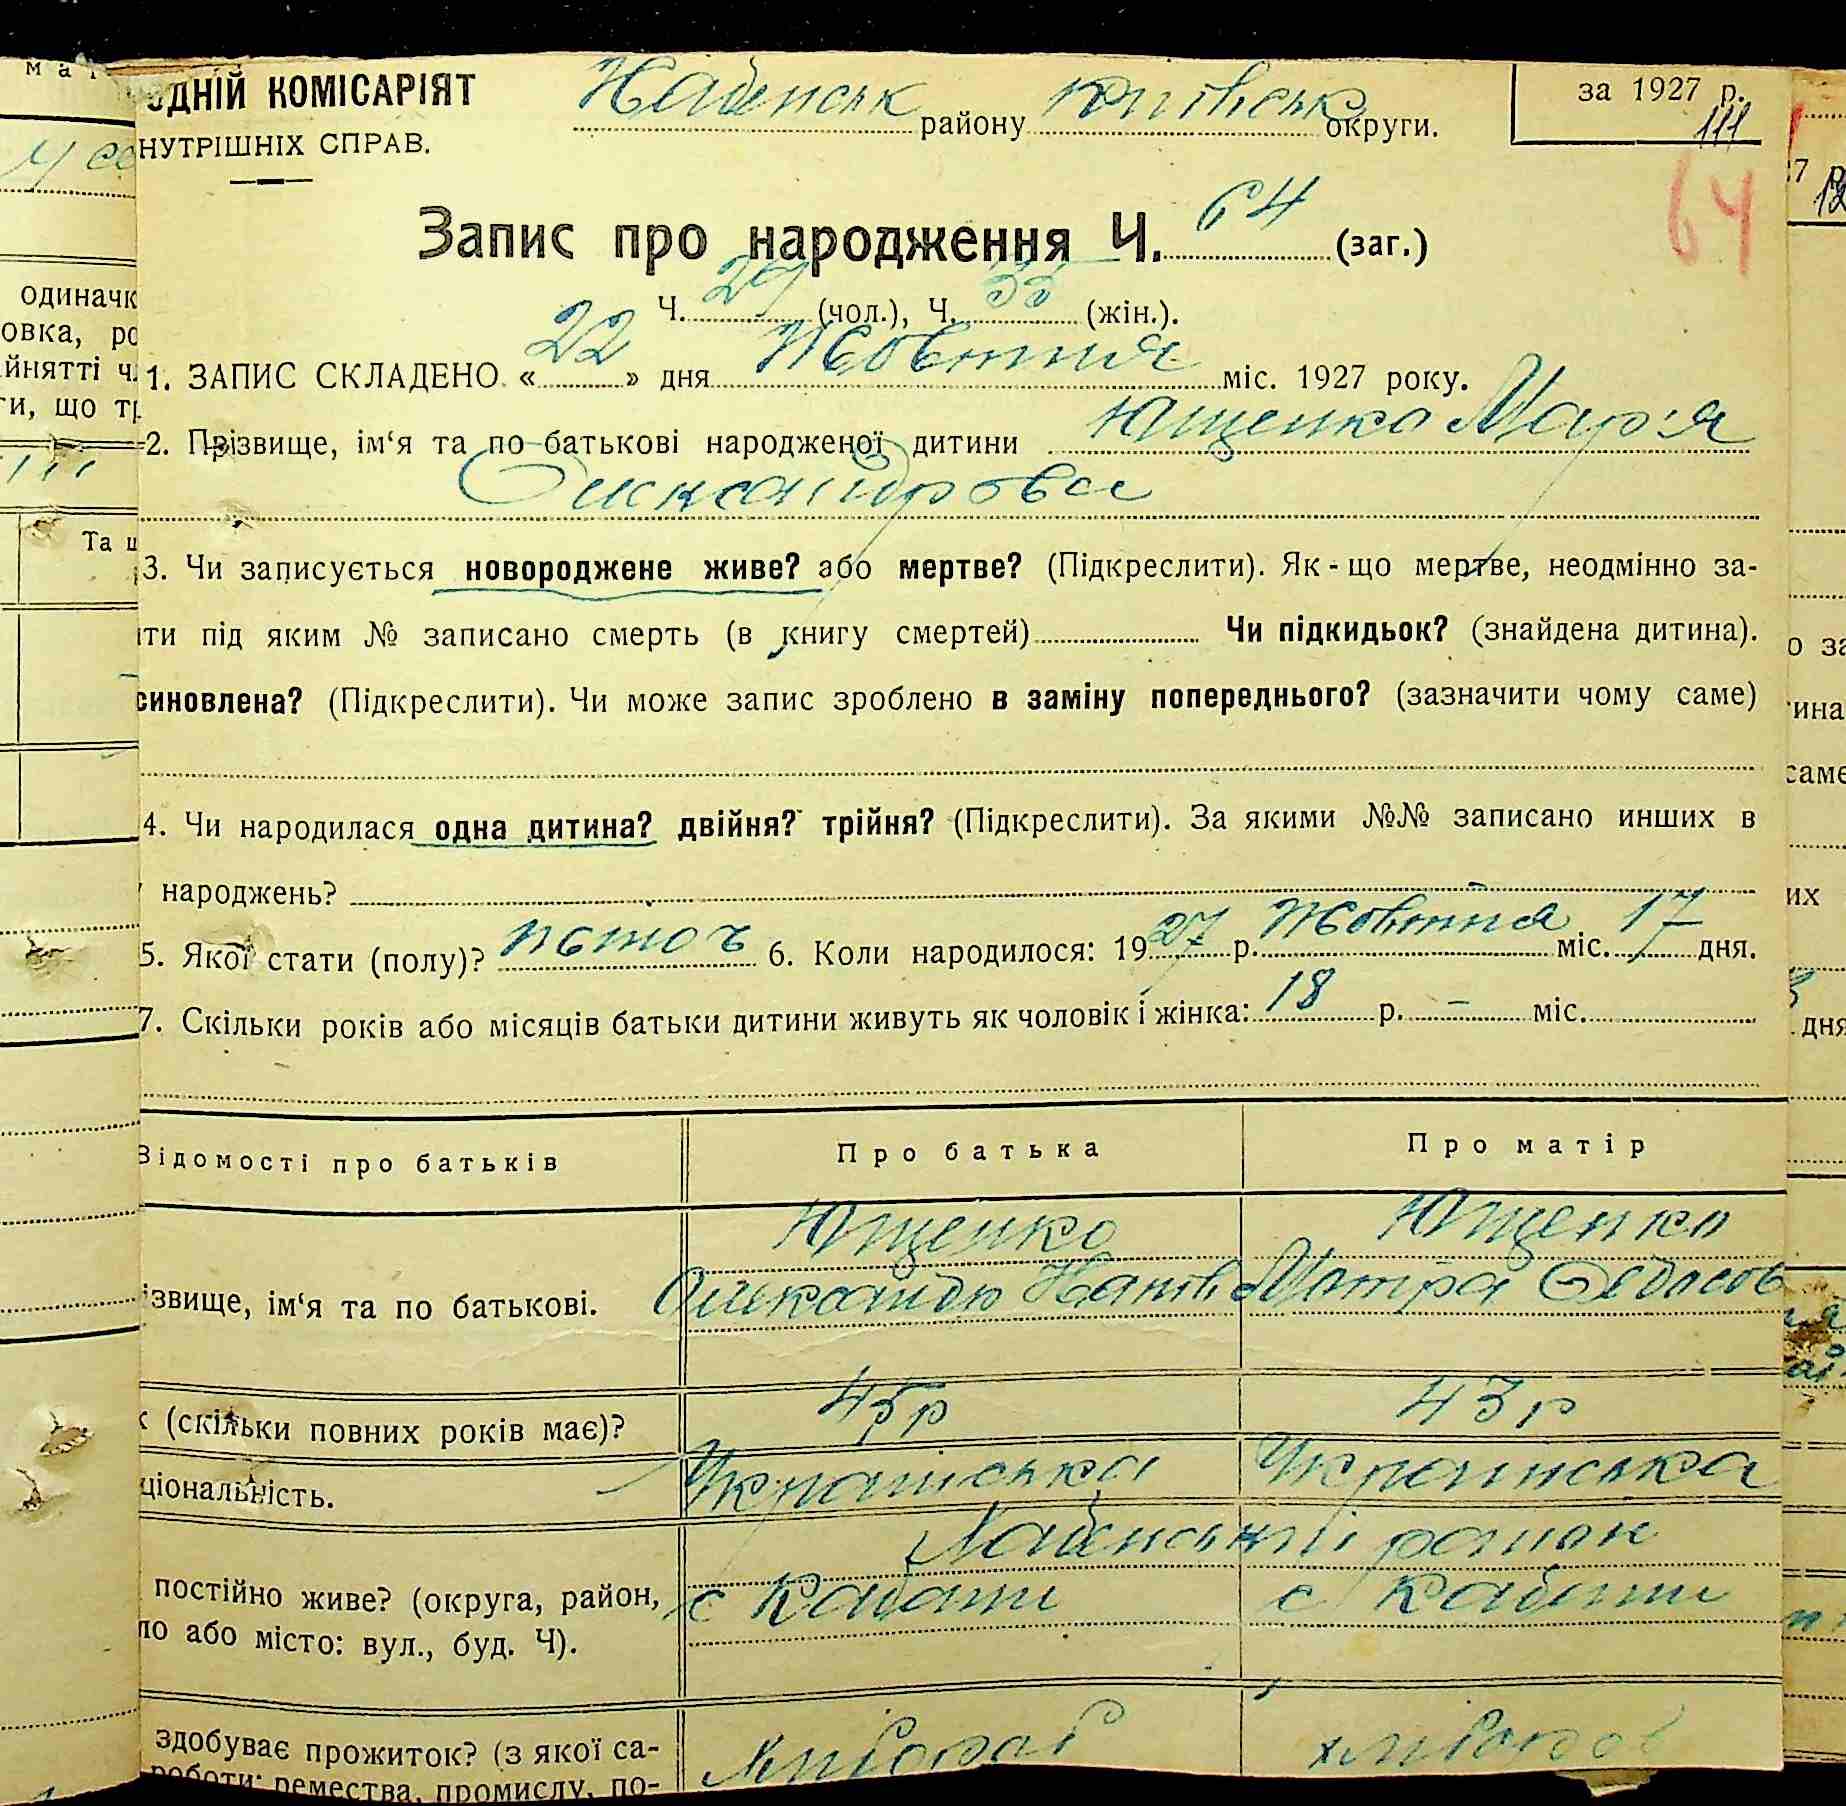 ОДНІЙ КОМІСАРІЯТ
НУТРІШНІХ СПРАВ.
району округи.
за 1927 р.
111
64
Запис про народження Ч. 64 (заг.)
Ч. 29 (чол.), Ч. 35 (жін.).
1. ЗАПИС СКЛАДЕНО «22» дня Жовтня міс. 1927 року.
2. Прізвище, ім‘я та по батькові народженої дитини Ющенко Мар'я
Олександрова
3. Чи записується новороджене живе? або мертве? (Підкреслити). Як-що мертве, неодмінно за-
ти під яким № записано смерть (в книгу смертей) Чи підкидьок? (знайдена дитина).
синовлена? (Підкреслити). Чи може запис зроблено в заміну попереднього? (зазначити чому саме)
4. Чи народилася одна дитина? двійня? трійня? (Підкреслити). За якими №№ записано инших в
народжень?
5. Якої стати (полу)? 6. Коли народилося: 1927 р. Жовтня міс. 17 дня.
7. Скільки років або місяців батьки дитини живуть як чоловік і жінка: 18 р. – міс.
Відомості про батьків Про батька Про матір
Ющенко Ющенко
ізвище, ім‘я та по батькові. Олександр
к (скільки повних років має)? 45р 43р
ціональність. Українська Українська
постійно живе? (округа, район, с с
ло або місто: вул., буд. Ч).
здобуває прожиток? (з якої са- хлібороб хлібороб
роботи: ремества, промислу, по-